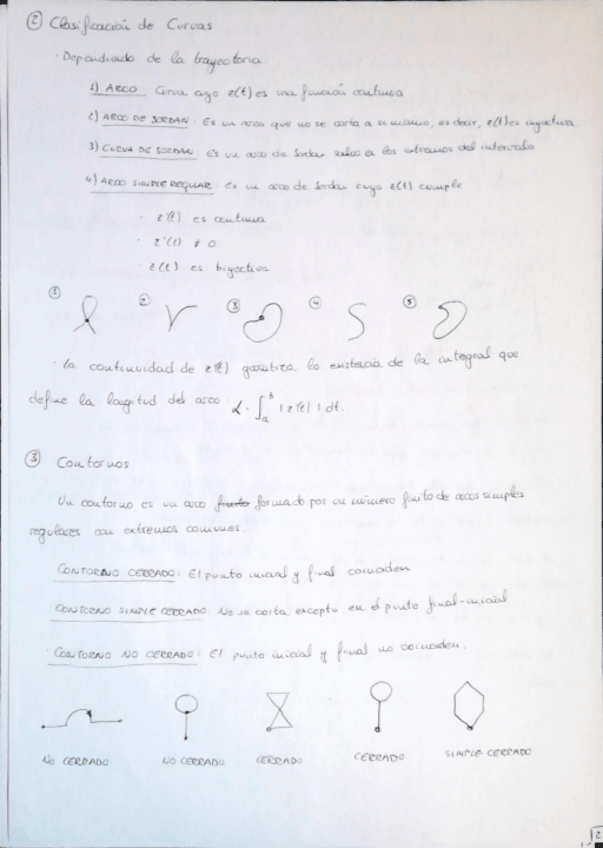 ② Clasificación de Curvas
· Dependiendo de la trayectoria
1) ARCO Curva cuyo z(t) es una función continua
2) ARCO DE JORDAN: Es un arco que no se corta a si mismo, es decir, z(t) es inyectiva
3) CURVA DE JORDAN Es un arco de Jordan salvo en los extremos del intervalo
4) ARCO SIMPLE REGULAR: Es un arco de Jordan cuyo z(t) cumple
· z'(t) es continua
· z'(t) ≠ 0
· z(t) es biyectiva
① ② ③ ④ ⑤
· La continuidad de z'(t) garantiza la existencia de la integral que
define la longitud del arco: L = ∫_a^b |z'(t)| dt.
③ Contornos
Un contorno es un arco finito formado por un número finito de arcos simples
regulares con extremos comunes.
CONTORNO CERRADO: El punto inicial y final coinciden
CONTORNO SIMPLE CERRADO: No se corta excepto en el punto final-inicial
· CONTORNO NO CERRADO: El punto inicial y final no coinciden.
NO CERRADO NO CERRADO CERRADO CERRADO SIMPLE CERRADO
2